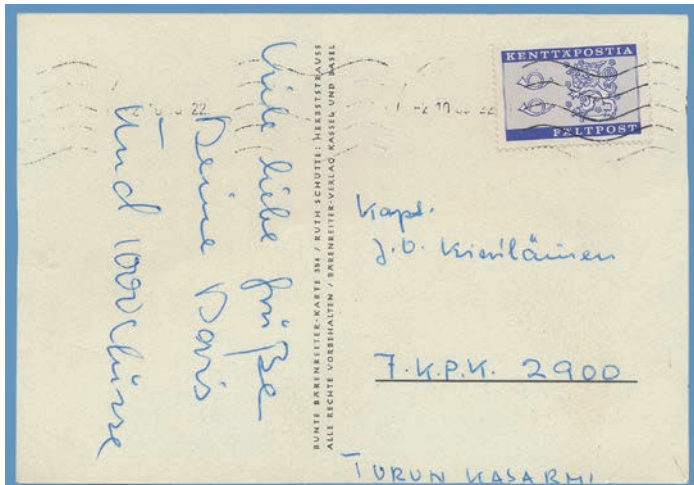 Viele liebe Grüße
Deine Doris
Und 1000 Küsse
BUNTE BÄRENREITER-KARTE 354 / RUTH SCHÜTTE: HERBSTSTRAUSS
ALLE RECHTE VORBEHALTEN / BÄRENREITER-VERLAG KASSEL UND BASEL
KENTTÄPOSTIA
FÄLTPOST
7.K.P.K. 2900
TURUN KASARMI